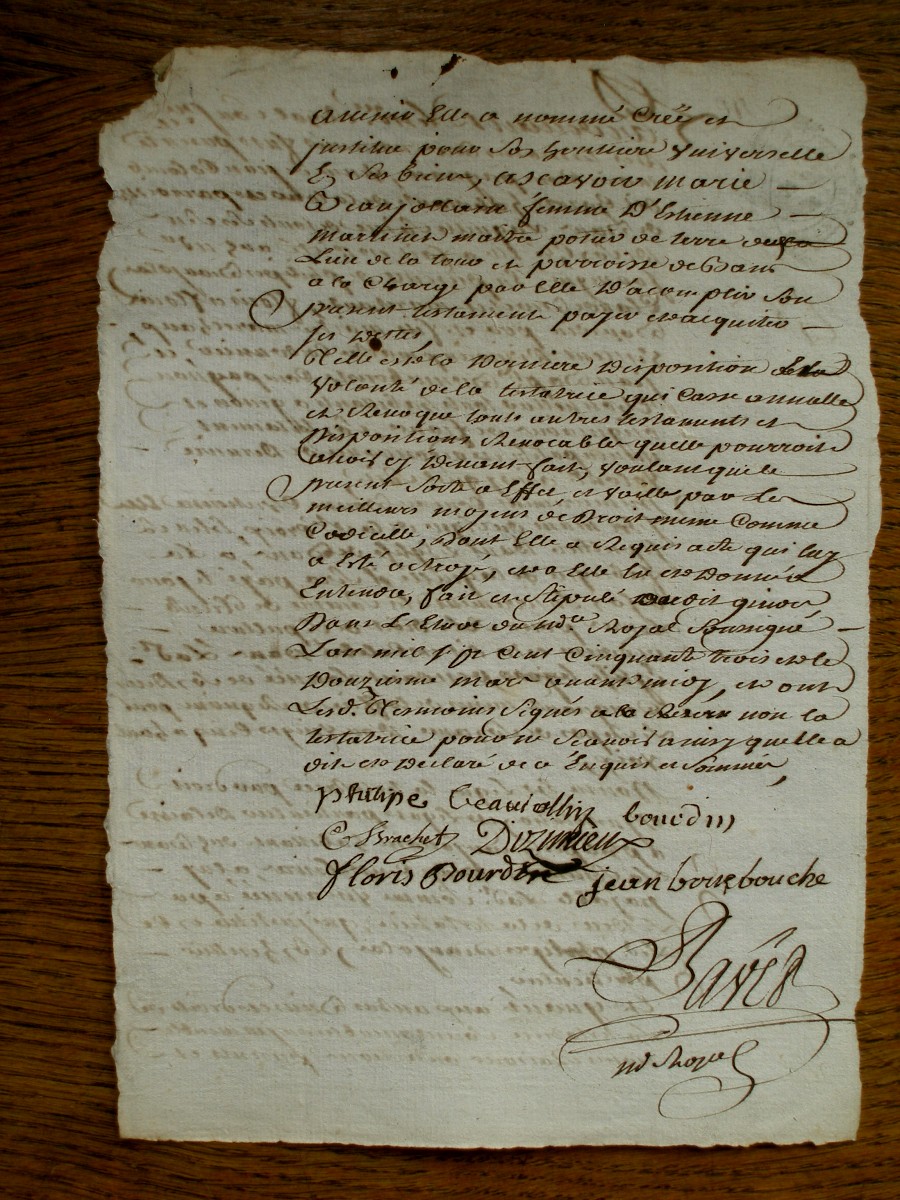 avenir Elle a nommé Créé et
justitue pour Son heritiere Vniverselle
En Ses biens, ascavoir marie
Beaujollain femme D'Estienne
martinet maitre potier de terre
Lieu de la tour et parroisse de
a la Charge par Elle D'acomplir Son
present testament payer et acquitter
ses dettes
Qelle est la Derniere Disposition et
volonté de la testatrice qui Casse annulle
et Revoque touts autres testaments et
Dispositions Revocable quelle pourroit
avoir cy devant fait, voulant que le
present Sorte a Effet, et vaille par Le
meilleurs moyens de Droit meme Comme
Codicille, Dont Elle a Requis acte qui luy
a Esté octroyé, et a Elle lu et Donné a
Entendre, fait et Stipulé
Dans L'Etude du nore Royal Soussigné
L'an mil sept Cent Cinquante trois et le
Douzieme mars avant midy, et ont
Lesd. tesmoins Signés a la non la
testatrice pour ne Scavoir ainsy quelle a
dit et Declaré de ce Enquis et Sommée,
philipe beaujollin bourdin
C Brachet Dizimieux
floris Bourdin jean bourbouche
Bavét
nre Royal